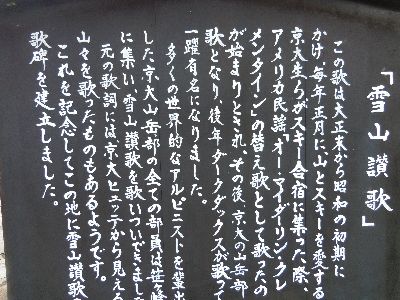 「雪山讃歌」
この歌は大正末から昭和の初期に
かけ、毎年正月に、山とスキーを愛する
京大生らがスキー合宿に集った際、
アメリカ民謡「オー・マイダーリン・クレ
メンタイン」の替え歌として歌ったの
が始まりとされ、その後、京大の山岳部
歌となり、後年ダークダックスが歌って
一躍有名になりました。
多くの世界的なアルピニストを輩出
した京大山岳部の全ての部員は笹ヶ峰
に集い、雪山讃歌を歌いついできました
元の歌詞には京大ヒュッテから見える
山々を歌ったものもあるようです。
これを記念してこの地に雪山讃歌
歌碑を建立しました。